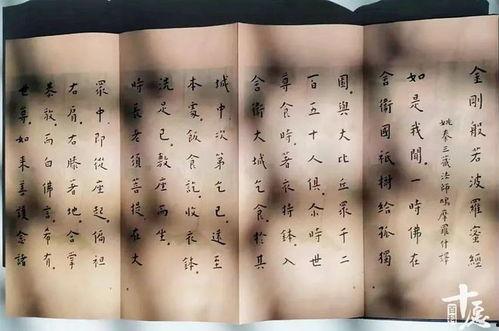 金剛般若波羅蜜經
姚秦三藏法師鳩摩羅什譯
如是我聞。一時佛在
舍衛國祇樹給孤獨
園。與大比丘眾千二
百五十人俱。尒時世
尊食時。著衣持鉢。入
舍衛大城乞食。於其
城中次第乞已。還至
本處。飯食訖。收衣鉢。
洗足已。敷座而坐。
時長老須菩提在大
眾中。即從座起。偏袒
右肩。右膝著地。合掌
恭敬。而白佛言。希有。
世尊。如來善護念諸
百科